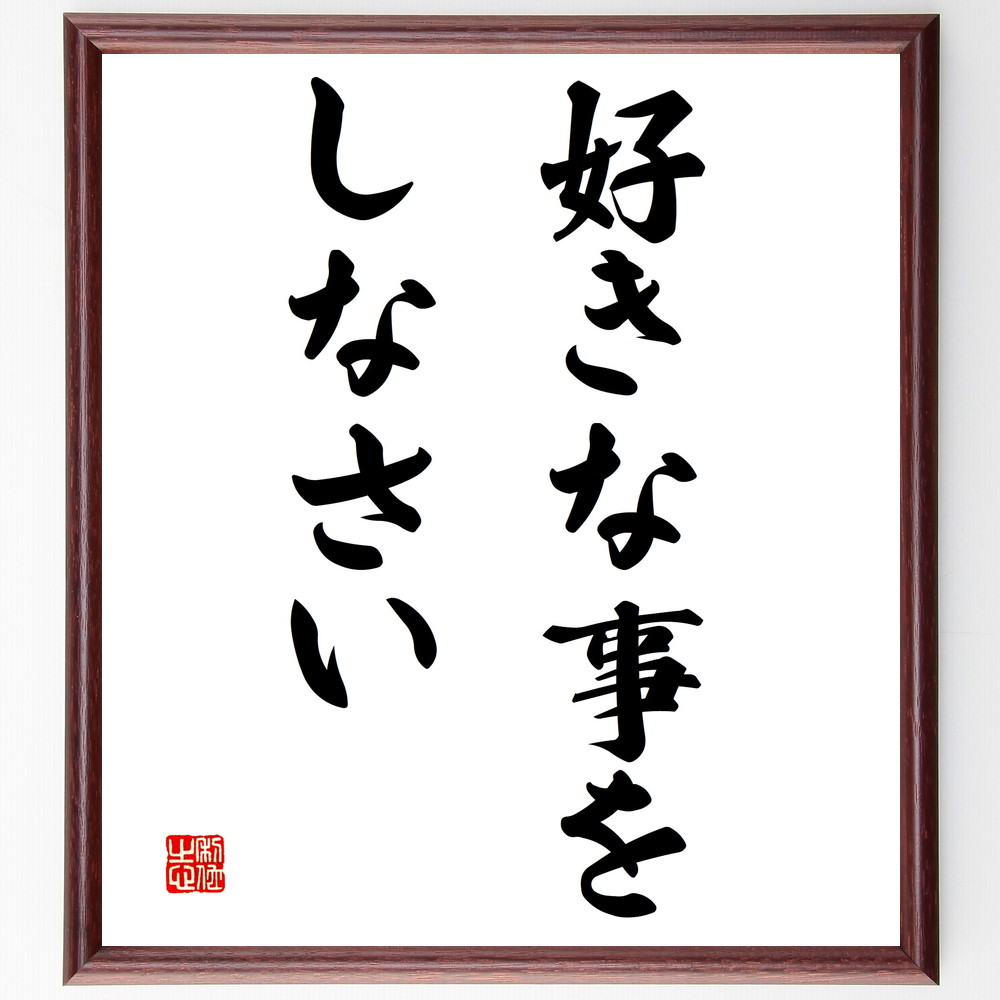 好きな事を
しなさい